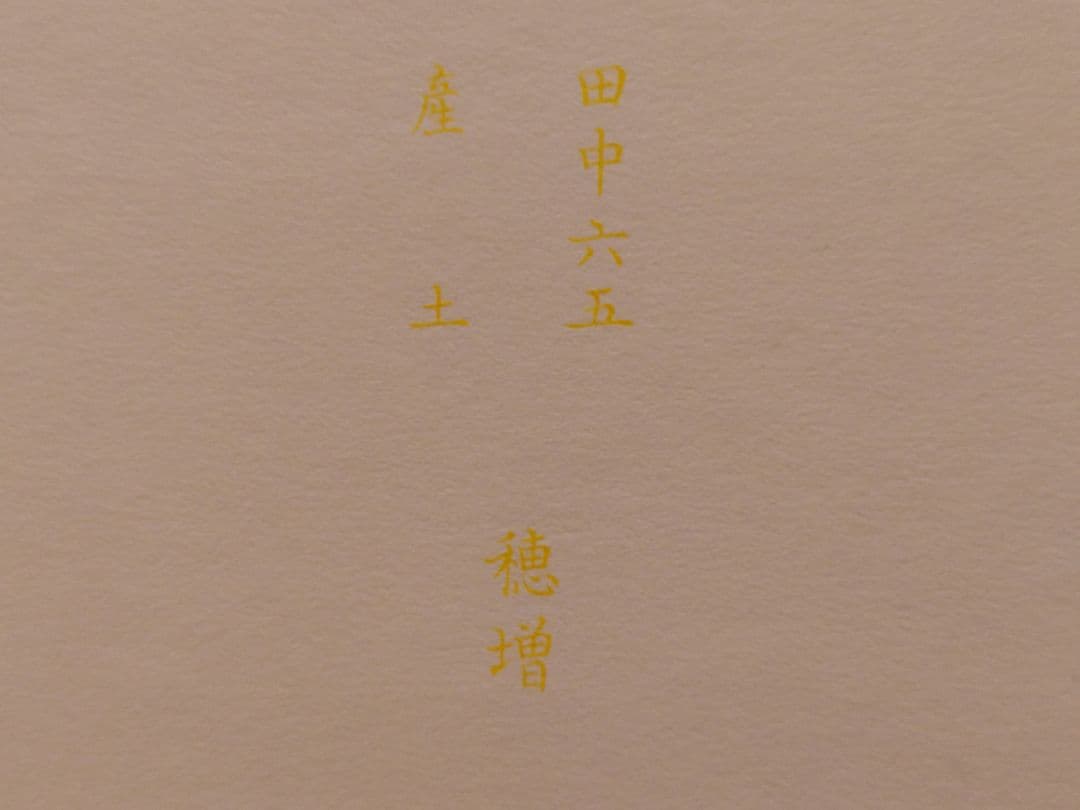 田中六五
産土
穂増